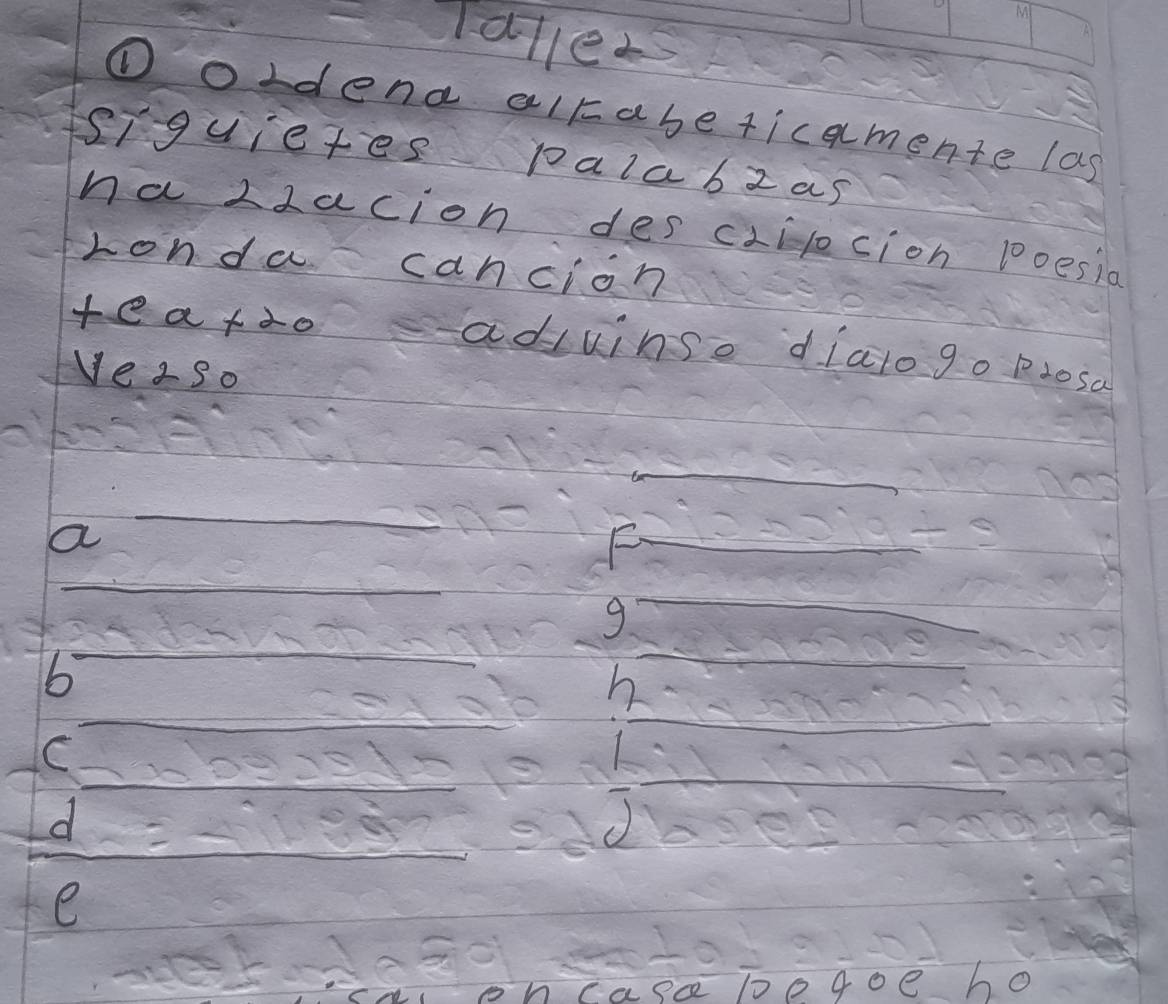 Taller
① ordena alfabeticamente las
siguietes palabras
narracion descripcion poesia
ronda canción
teatro adivinso dialogo prosa
Verso
a
F
g
b
h
c
i
d
j
e
en casa pegoe ho